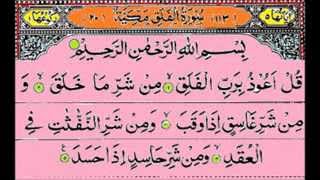 سُوْرَةُ الْفَلَقِ مَكِّيَّةٌ
بِسْمِ اللّٰهِ الرَّحْمٰنِ الرَّحِيْمِ
قُلْ اَعُوْذُ بِرَبِّ الْفَلَقِ ۙ مِنْ شَرِّ مَا خَلَقَ ۙ وَ
مِنْ شَرِّ غَاسِقٍ اِذَا وَقَبَ ۙ وَمِنْ شَرِّ النَّفّٰثٰتِ فِي
الْعُقَدِ ۙ وَمِنْ شَرِّ حَاسِدٍ اِذَا حَسَدَ